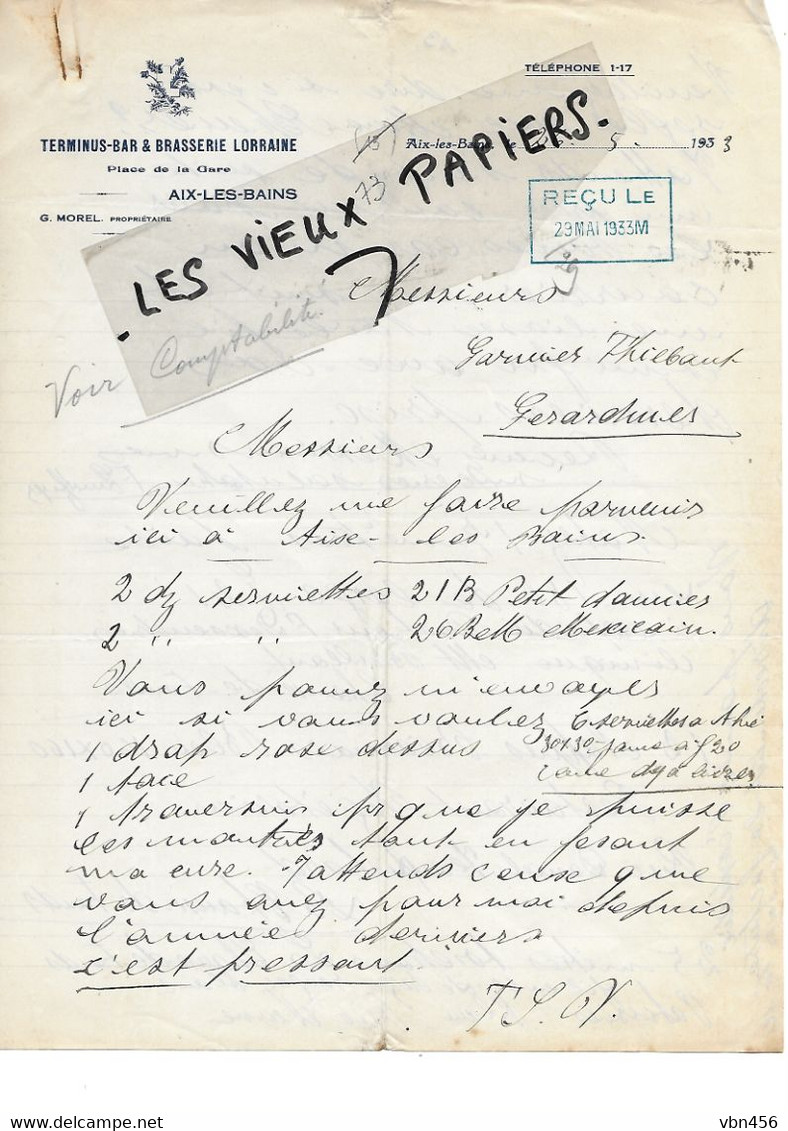 TÉLÉPHONE 1-17
TERMINUS-BAR & BRASSERIE LORRAINE
Place de la Gare
AIX-LES-BAINS
G. MOREL. PROPRIÉTAIRE
Aix-les-Bains, le 5. 1933
REÇU LE
29 MAI 1933M
. LES VIEUX PAPIERS.
73
Voir Comptabilité.
Messieurs
Garnier Thiebaut
Gerardmer
Messieurs
Veuillez me faire parvenir
ici à Aise-les Bains.
2 dz serviettes 21B Petit damier
2 " " 26 BM Mexicain.
Vous pouvez m'envoyer
ici si vous voulez 6 serviettes a thé
1 drap rose dessus 30x30 jaune à f 20
1 taee comme deja livrer
1 traversin pr que je puisse
les montrès tout en fesant
ma cure. J'attends ceuse que
vous avez pour moi depuis
l'année derniers
c'est pressant
T S. V.
Delcampe.net
vbn456